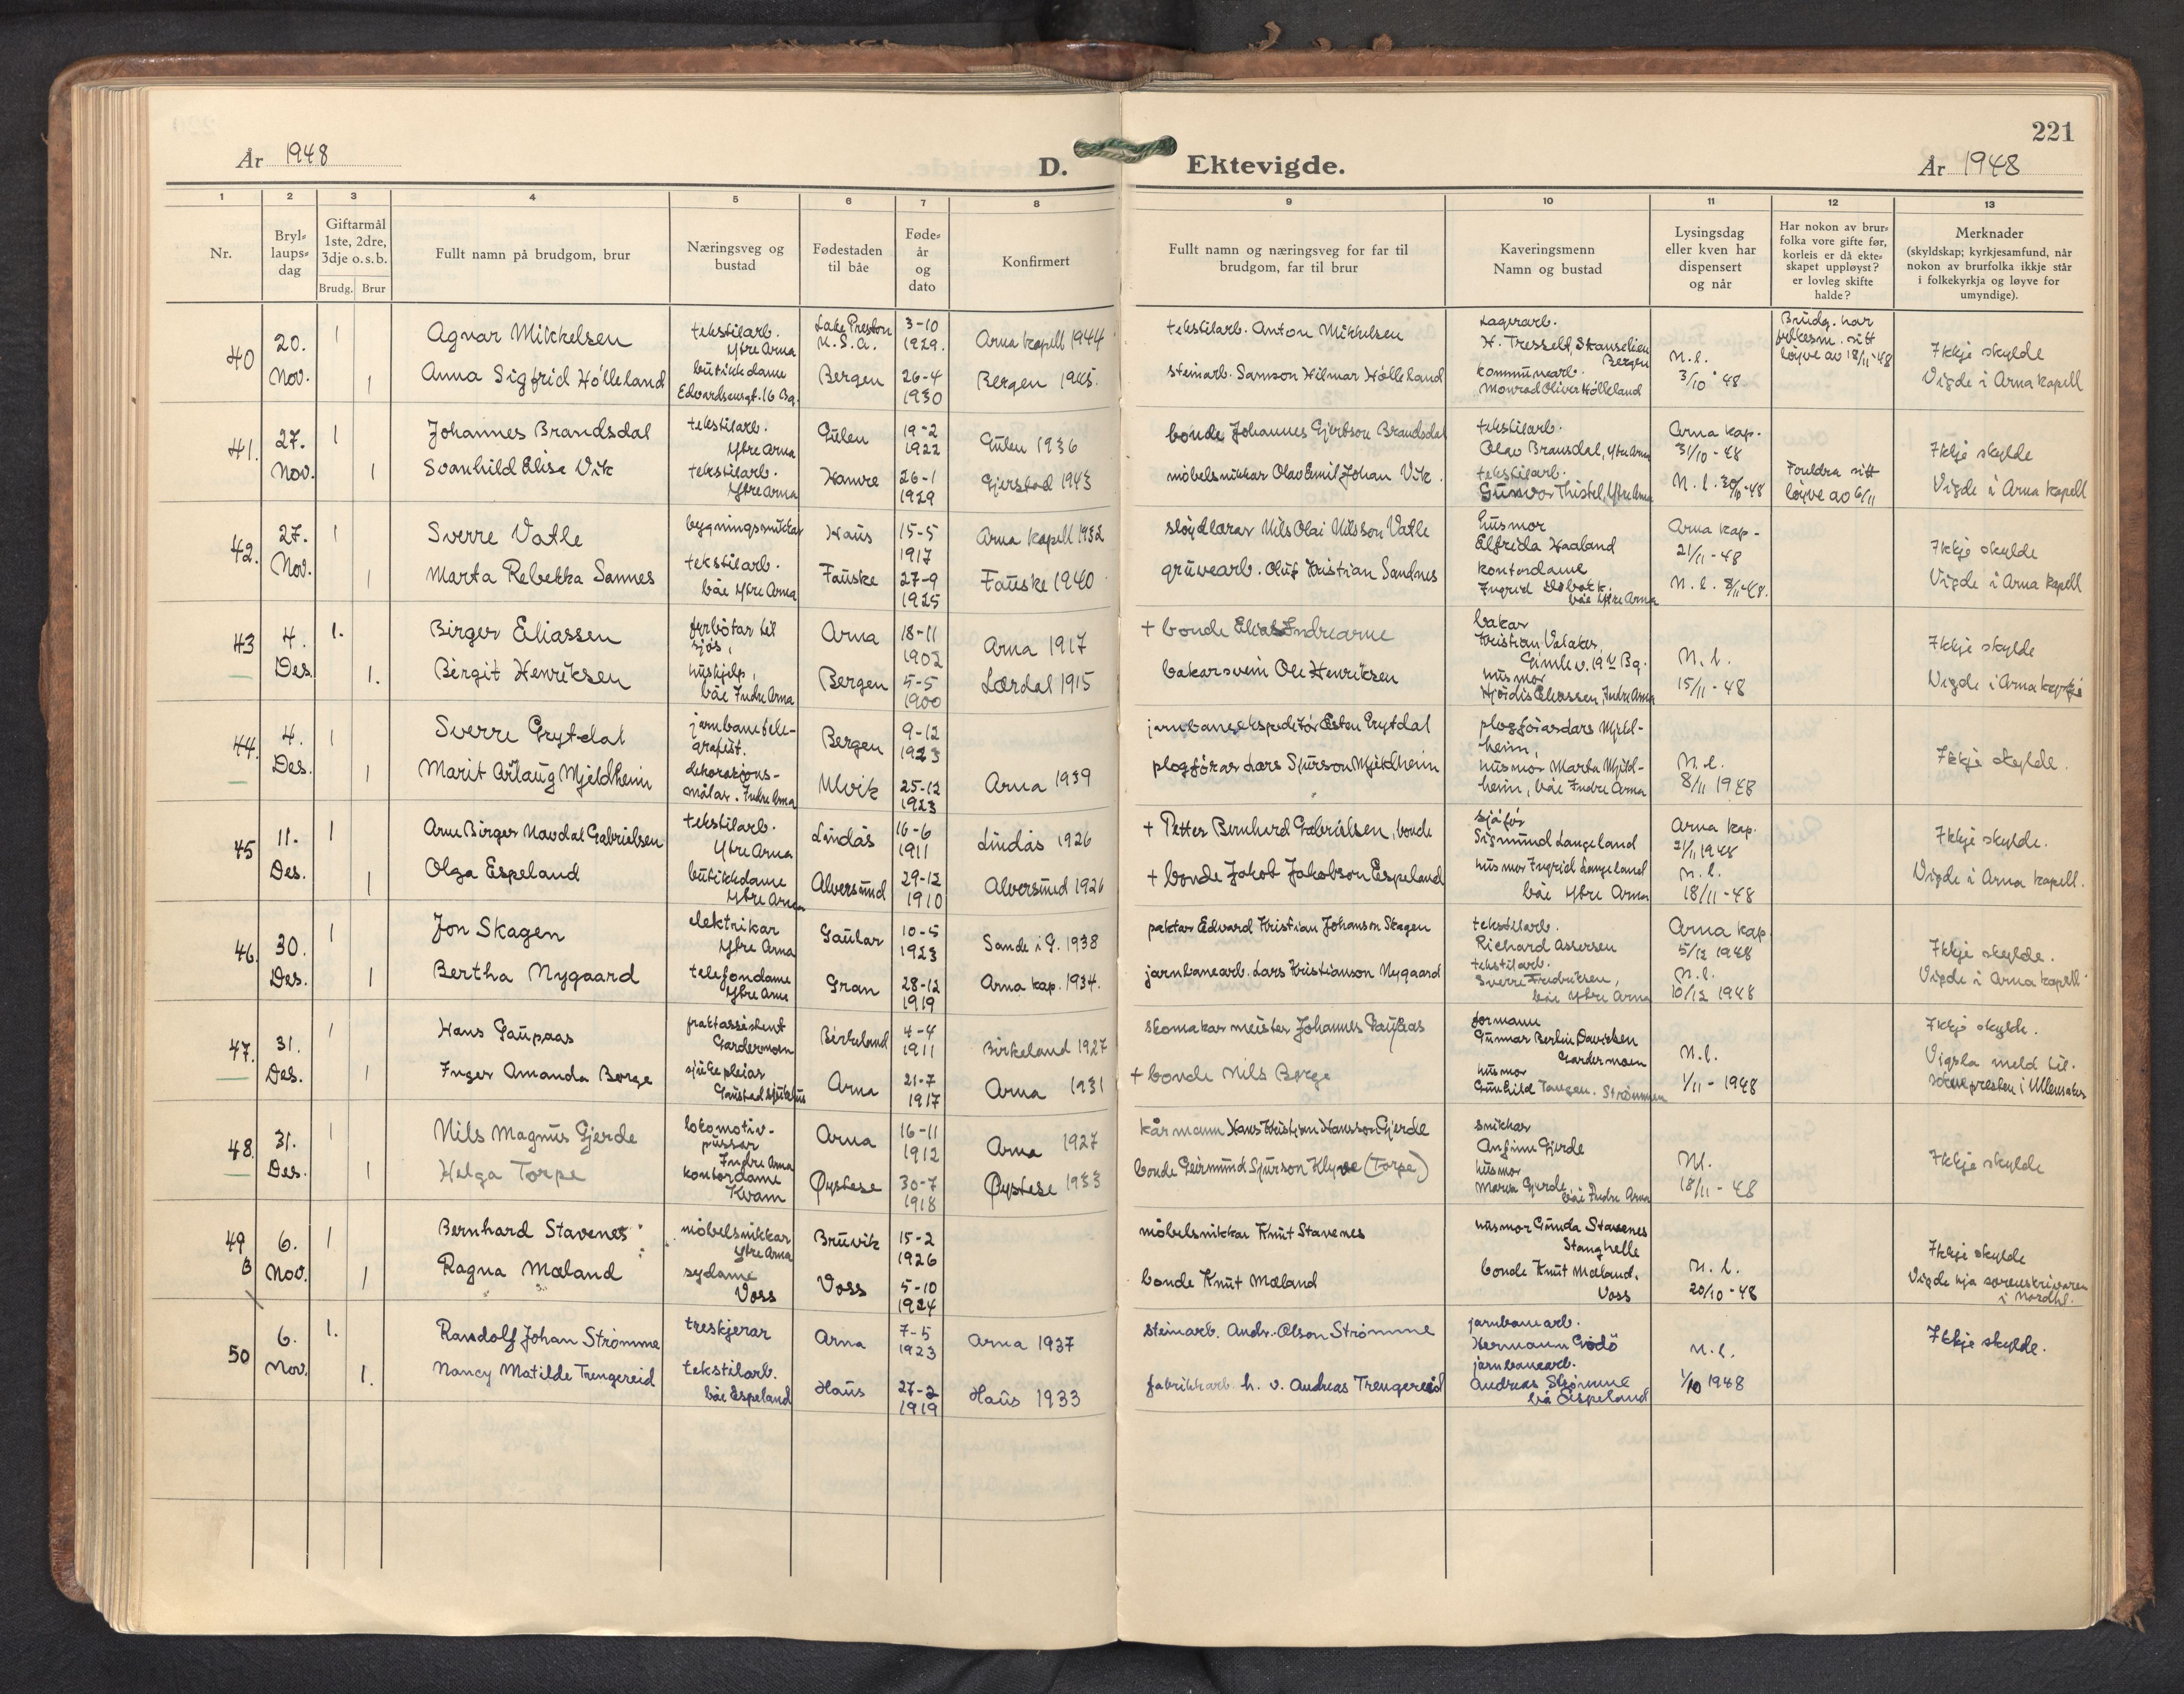 221
År 1948
D. Ektevigde.
År 1948
1 2 3 4 5 6 7 8 9 10 11 12 13
Nr.
Bryl-
laups-
dag
Giftarmål
1ste, 2dre,
3dje o.s.b.
Brudg. Brur
Fullt namn på brudgom, brur
Næringsveg og
bustad
Fødestaden
til båe
Føde-
år
og
dato
Konfirmert
Fullt namn og næringsveg for far til
brudgom, far til brur
Kaveringsmenn
Namn og bustad
Lysingsdag
eller kven har
dispensert
og når
Har nokon av brur-
folka vore gifte før,
korleis er då ekte-
skapet uppløyst?
er lovleg skifte
halde?
Merknader
(skyldskap; kyrkjesamfund, når
nokon av brurfolka ikkje står
i folkekyrkja og løyve for
umyndige).
40
20.
Nov.
1
Agnar Mikkelsen
tekstilarb.
Ytre Arna
Lake Preston
U.S.A.
3-10
1929.
Arna kapell 1944
tekstilarb. Anton Mikkelsen
Lagerarb.
H. Tresselt, Skanselien
Bergen
Brudg. har
sitt
løyve av 18/11-48
1
Anna Sigfrid Hølleland
butikkdame
Edvardsensgt. 16 Bg.
Bergen
26-4
1930
Bergen 1945.
steinarb. Samson Hilmar Hølleland
kommunearb.
Monrad Oliver Hølleland
N.l.
3/10 48
Ikkje skylde
Vigde i Arna kapell
41.
27.
Nov.
1
Johannes Brandsdal
tekstilarb.
Ytre Arna
Gulen
19-2
1922
Gulen 1936
bonde Johannes Gjertson Brandsdal
tekstilarb.
Olav Bransdal, Ytre Arna
Arna kap.
31/10-48
1
Svanhild Elise Vik
tekstilarb.
Ytre Arna
Hamre
26-1
1929
Gjerstad 1943
møbelsnikkar Olav Emil Johan Vik.
tekstilarb.
Gunvor Thistel, Ytre Arna
N.l. 30/10-48
Foreldra sitt
løyve av 6/11
Ikkje skylde
Vigde i Arna kapell
42.
27.
Nov.
1
Sverre Vatle
bygningssnikkar
Haus
15-5
1917
Arna kapell 1932
sløydlærar Nils Olai Nilsson Vatle
husmor
Elfrida Haaland
Arna kap-
21/11-48
1
Marta Rebekka Sannes
tekstilarb.
båe Ytre Arna
Fauske
27-9
1925
Fauske 1940
gruvearb. Oluf Kristian Sandnes
kontordame
Ingrid
båe Ytre Arna
N.l. 8/11-48.
Ikkje skylde
Vigde i Arna kapell
43
4.
Des.
1.
Birger Eliassen
fyrbøtar til
sjøs,
Arna
18-11
1902
Arna 1917
+ bonde Elias Indrearne
bakar
Kristian Valaker,
Gimlev. 19 Bg.
1.
Birgit Henriksen
hushjelp,
båe Indre Arna
Bergen
5-5
1900
Lærdal 1915
bakarsvein Ole Henriksen
husmor
Hjørdis Eliassen, Indre Arna
N.l.
15/11-48
Ikkje skylde
Vigde i Arna kyrkje
44.
4.
Des.
1
Sverre Grytdal
jarnbanetele-
grafist.
Bergen
9-12
1923
jarnbaneekspeditør Esten Grytdal
plogførar Lars Mjeld-
heim,
1
Marit Årlaug Mjeldheim
dekorasjons-
målar. Indre Arna
Ulvik
25-12
1923
Arna 1939
plogførar Lars Sjurson Mjeldheim
husmor Marta Mjeld-
heim, båe Indre Arna
N.l.
8/11 1948
Ikkje skylde.
45
11.
Des.
1
Arne Birger Navdal Gabrielsen
tekstilarb.
Ytre Arna
Lindås
16-6
1911
Lindås 1926
+ Petter Bernhard Gabrielsen, bonde
sjåfør
Sigmund Langeland
Arna kap.
21/11 1948
1
Olga Espeland
butikkdame
Ytre Arna
Alversund
29-12
1910
Alversund 1926
+ bonde Jakob Jakobson Espeland
husmor Ingrid Langeland
båe Ytre Arna
N.l.
18/11-48
Ikkje skylde.
Vigde i Arna kapell.
46.
30.
Des.
1
Jon Skagen
elektrikar
Ytre Arna
Gaular
10-5
1923
Sande i G. 1938
paktar Edvard Kristian Johanson Skagen
tekstilarb.
Richard Assersen
Arna kap
5/12 1948
1
Bertha Nygaard
telefondame
Ytre Arna
Gran
28-12
1919
Arna kap. 1934.
jarnbanearb. Lars Kristianson Nygaard
tekstilarb.
Sverre Fredriksen,
båe Ytre Arna
N.l.
10/12 1948
Ikkje skylde.
Vigde i Arna kapell
47.
31.
Des.
1
Hans Gaupaas
fraktassistent
Gardermoen
Birkeland
4-4
1911
Birkeland 1927
skomakarmeister Johannes Gaupaas
formann
Gunnar Berlin Davidsen
Gardermoen
1
Inger Amanda Borge
sjukepleiar
Gaustad sjukehus
Arna
21-7
1917
Arna 1931
+ bonde Nils Borge
husmor
Gunhild Tangen. Strømmen
N.l.
1/11-1948
Ikkje skylde.
Vigsla meld til.
soknepresten i Ullensaker
48.
31.
Des.
1
Nils Magnus Gjerde
lokomotiv-
pussar
Indre Arna
Arna
16-11
1912
Arna 1927
kårmann Hans Kristian Hansson Gjerde
snikkar
Anfinn Gjerde
1
Helga Torpe
kontordame
Kvam
Øystese
30-7
1918
Øystese 1933
bonde Geirmund Sjurson Klyve (Torpe)
husmor
Maria Gjerde,
båe Indre Arna
N.l.
18/11-48
Ikkje skylde
49
B
6.
Nov.
1
Bernhard Stavenes
møbelsnikkar
Ytre Arna
Bruvik
15-2
1926
møbelsnikkar Knut Stavenes
husmor Gunda Stavenes
Stanghelle
1
Ragna Mæland
sydame
Voss
Voss
5-10
1924
bonde Knut Mæland
bonde Knut Mæland.
Voss
N.l.
20/10-48
Ikkje skylde
Vigde hja sorenskrivaren
i Nordhl.
50
6.
Nov.
1.
Randolf Johan Strømme
treskjerar
Arna
7-5
1923
Arna 1937
steinarb. Andr. Olson Strømme
jarnbanearb.
Hermann Godø
1.
Nancy Matilde Trengereid
tekstilarb.
båe Espeland
Haus
27-2
1919
Haus 1933
fabrikkarb. h. v. Andreas Trengereid
jarnbanearb.
Andreas Strømme
båe Espeland
N.l.
1/10 1948
Ikkje skylde.